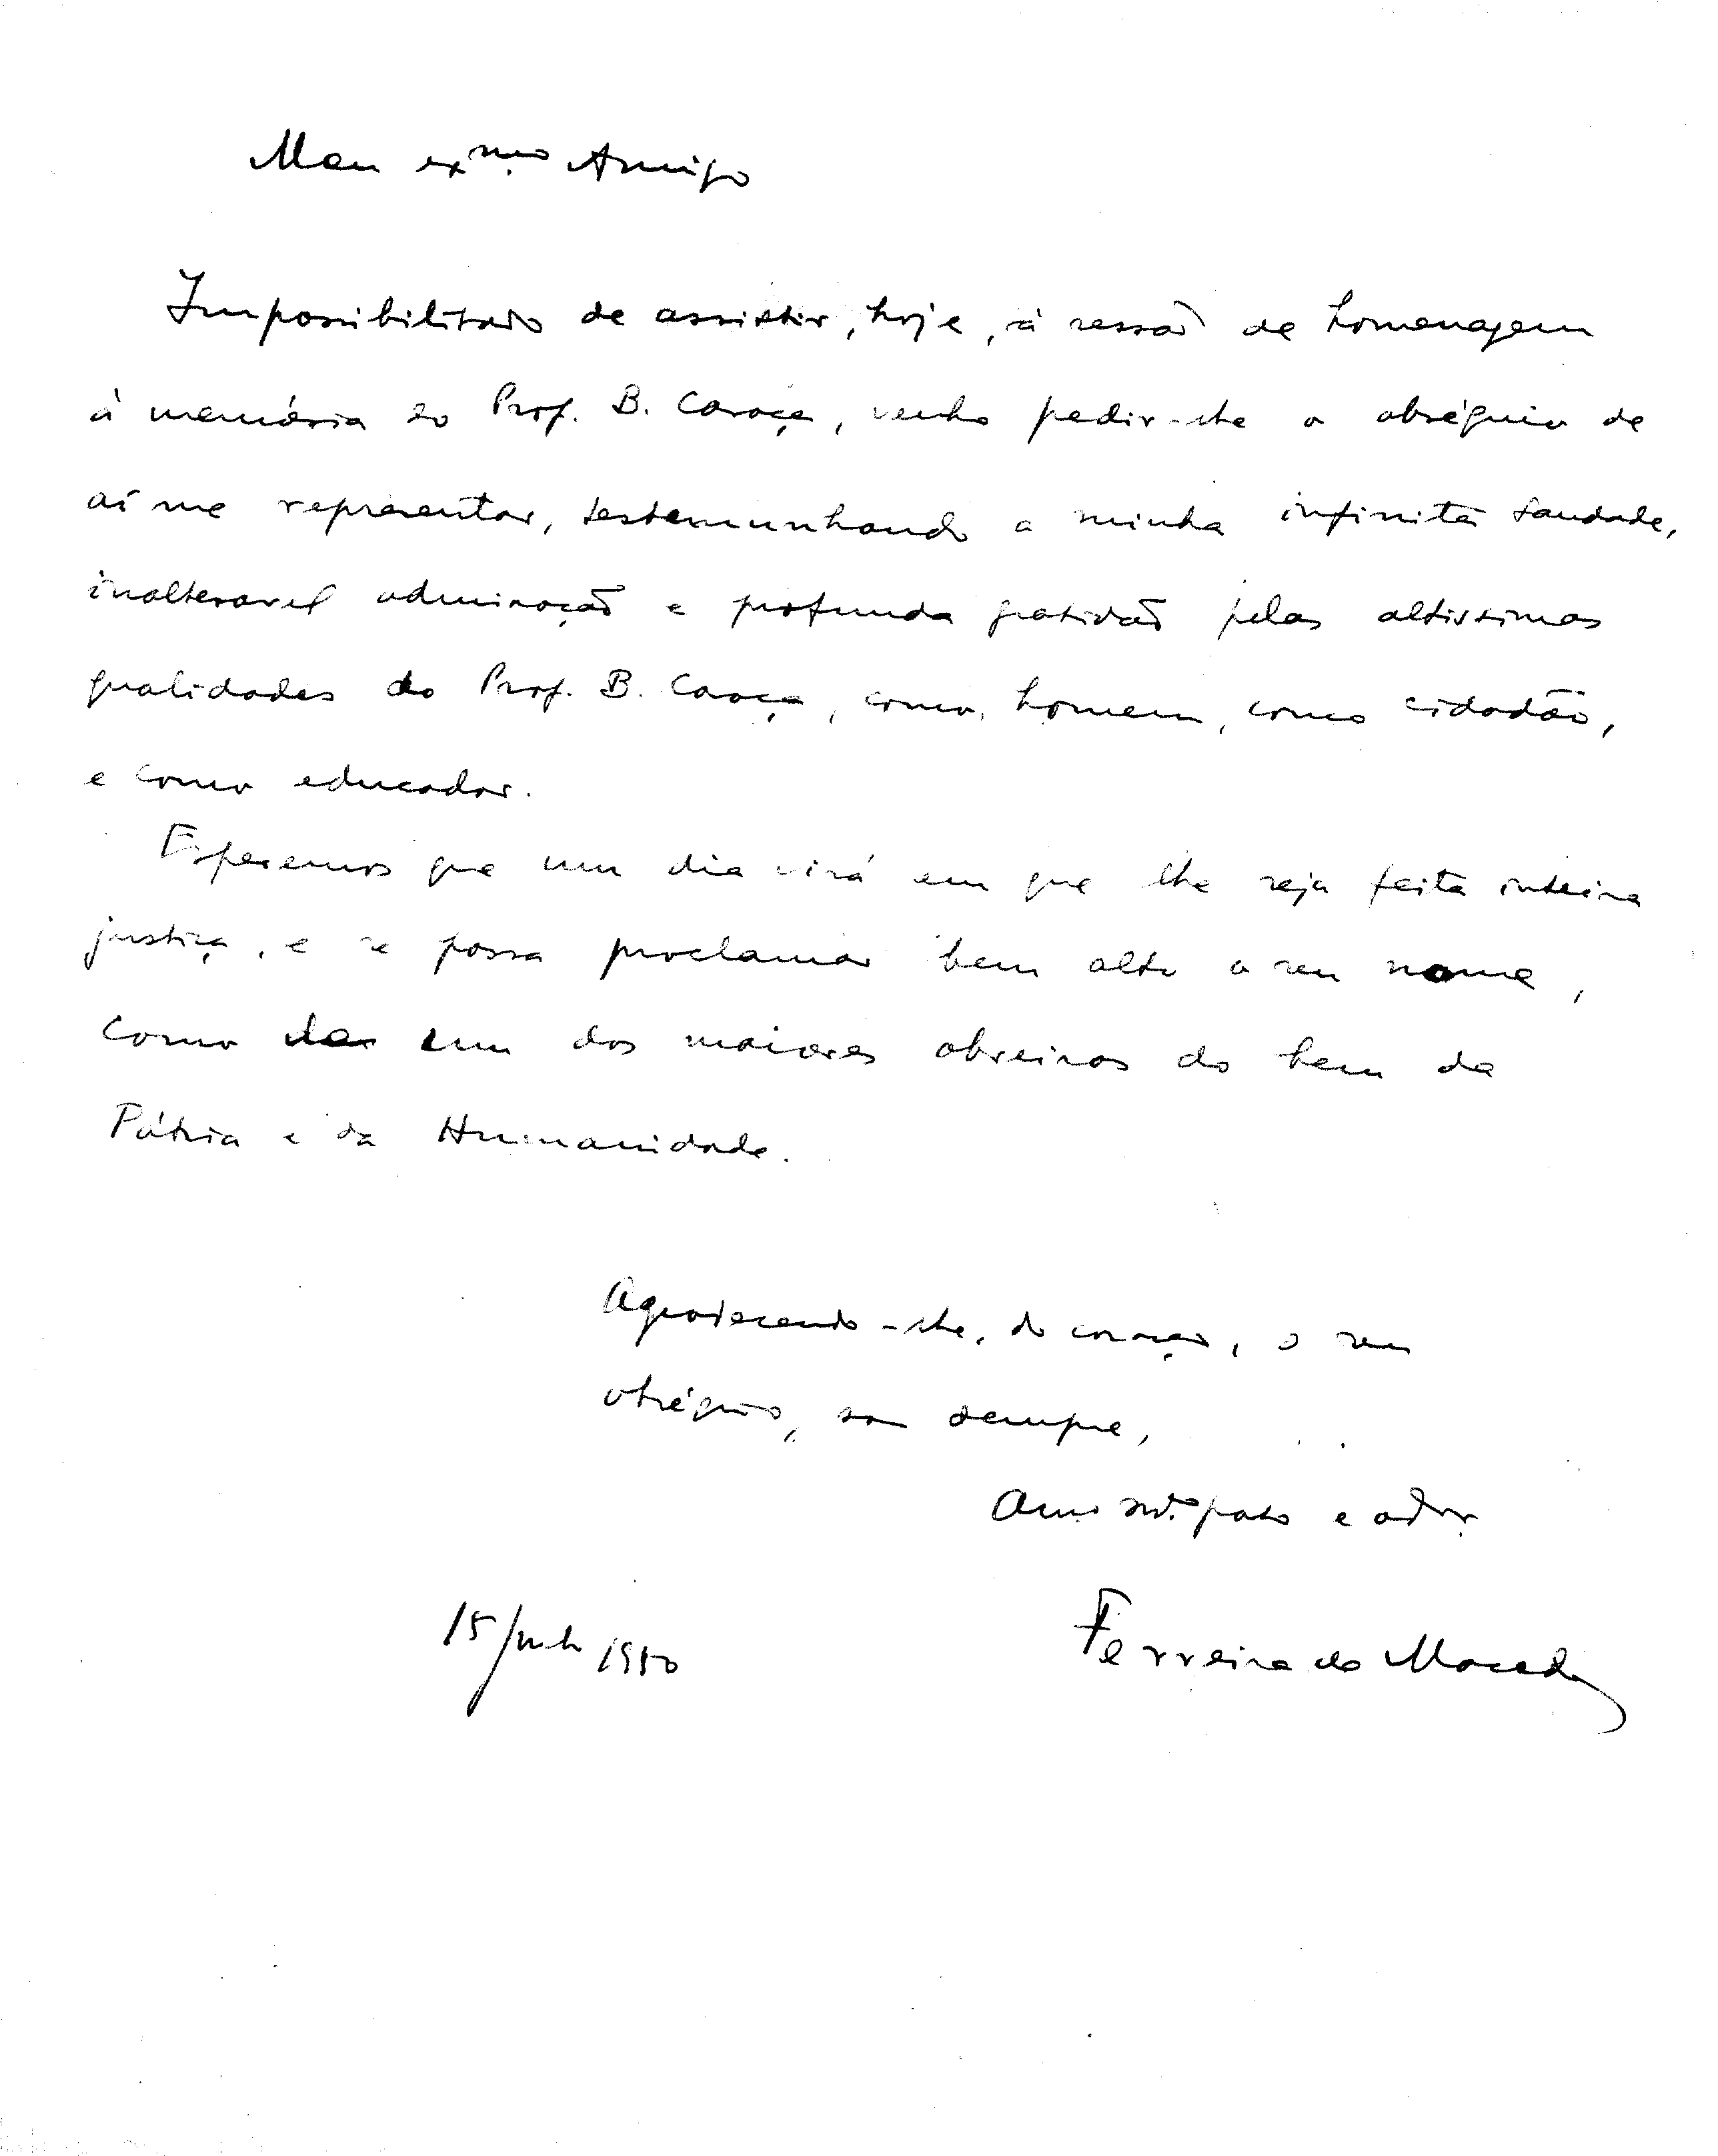 Meu exmo. Amigo
Impossibilitado de assistir, hoje, à sessão de homenagem
à memória do Prof. B. Caraça, venho pedir-lhe o obséquio de
aí me representar, testemunhando a minha infinita saudade,
inalteravel admiração e profunda gratidão pelas altissimas
qualidades do Prof. B. Caraça, como homem, como cidadão,
e como educador.
Esperemos que um dia virá em que lhe seja feita inteira
justiça, e se possa proclamar bem alto o seu nome,
como um dos maiores obreiros do bem da
Pátria e da Humanidade.
Agradecendo-lhe, do coração, o seu
obséquio, sou sempre,
Amo. mto. grato e ador.
15/Junho 1950
Ferreira de Macedo